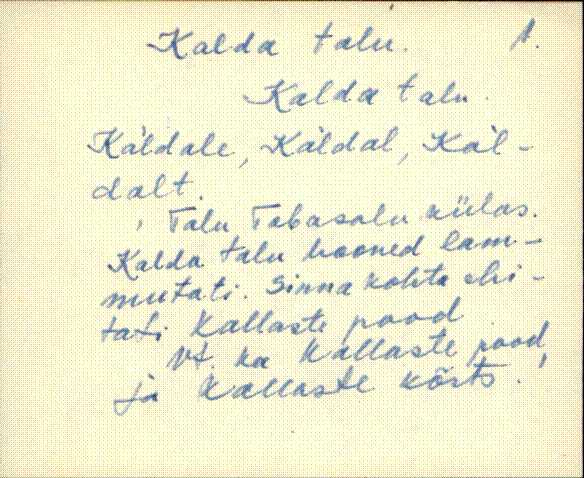 Kalda talu. 1.
Kalda talu.
Kàldale, Kàldal, Kàl-
dalt.
Talu Tabasalu külas.
Kalda talu hooned lam-
mutati. Sinna kohta ehi-
tati Kallaste pood
Vt. ka Kallaste pood
ja Kallaste kõrts.